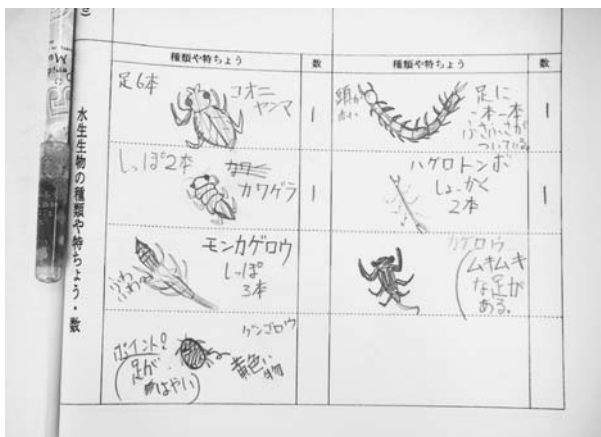 水生生物の種類や特ちょう・数
種類や特ちょう
数
種類や特ちょう
数
足6本
コオニ
ヤンマ
1
頭が
赤い
足に
一本一本
ふさふさが
ついている
1
しっぽ2本
カワゲラ
1
ハグロトンボ
しょっかく
2本
1
モンカゲロウ
しっぽ
3本
ふわふわ
カゲロウ
ムキムキ
な足が
ある。
ゲンゴロウ
ポイント!
足が
はやい
黄色い
物